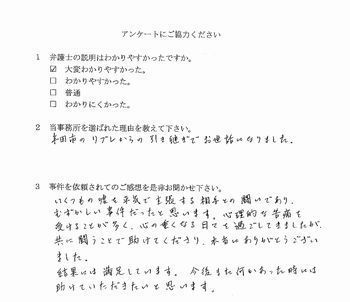 アンケートにご協力ください
1 弁護士の説明はわかりやすかったですか。
☑ 大変わかりやすかった。
□ わかりやすかった。
□ 普通
□ わかりにくかった。
2 当事務所を選ばれた理由を教えて下さい。
のリブレからの引き継ぎでお世話になりました。
3 事件を依頼されてのご感想を是非お聞かせ下さい。
いくつもの嘘を平気で主張する相手との闘いであり、
むずかしい事件だったと思います。心理的な苦痛を
受けることが多く、心の重くなる日々を過ごしてきましたが、
共に闘うことで助けてくださり、本当にありがとうござい
ました。
結果には満足しています。今後また何かあった時には
助けていただきたいと思います。